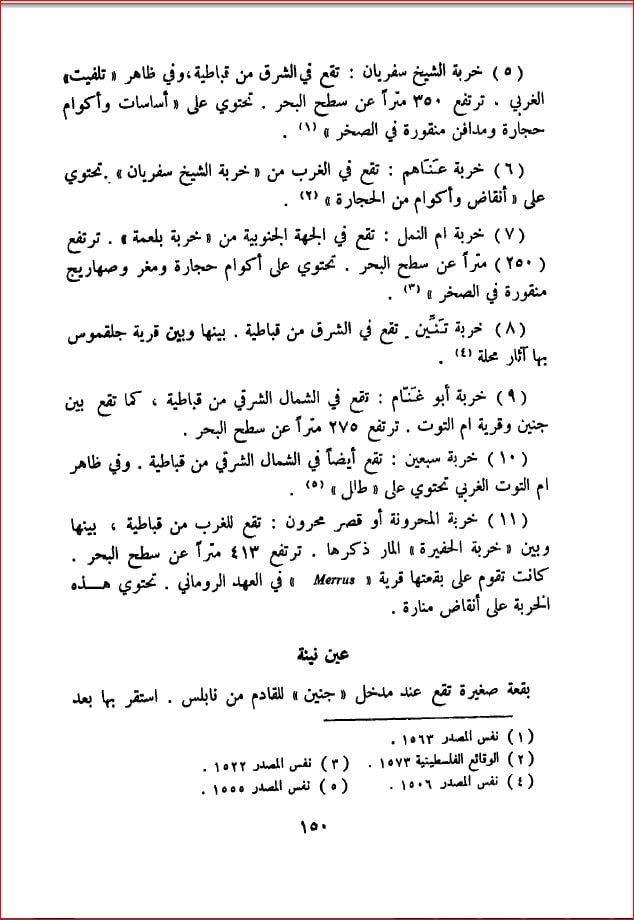 ( ٥ ) خربة الشيخ سفريان : تقع في الشرق من قباطية ،وفي ظاهر « تلفيت»
الغربي . ترتفع ٣٥٠ متراً عن سطح البحر . تحتوي على « أساسات وأكوام
حجارة ومدافن منقورة في الصخر » (١) .
( ٦ ) خربة عَنَاهم : تقع في الغرب من « خربة الشيخ سفريان » . تحتوي
على « أنقاض وأكوام من الحجارة » (٢) .
( ٧ ) خربة ام النمل : تقع في الجهة الجنوبية من « خربة بلعمة » . ترتفع
( ٢٥٠ ) متراً عن سطح البحر . تحتوي على أكوام حجارة ومغر وصهاريج
منقورة في الصخر » (٣) .
( ٨ ) خربة تَنّين . تقع في الشرق من قباطية . بينها وبين قرية جلقموس
بها آثار محلة (٤) .
( ٩ ) خربة أبو غَنّام : تقع في الشمال الشرقي من قباطية ، كما تقع بين
جنين وقرية ام التوت . ترتفع ٢٧٥ متراً عن سطح البحر .
( ١٠ ) خربة سبعين : تقع أيضاً في الشمال الشرقي من قباطية . وفي ظاهر
ام التوت الغربي تحتوي على « طال » (٥) .
( ١١ ) خربة المحرونة أو قصر محرون : تقع للغرب من قباطية ، بينها
وبين « خربة الحفيرة » المار ذكرها . ترتفع ٤١٣ متراً عن سطح البحر .
كانت تقوم على بقعتها قرية « Merrus » في العهد الروماني . تحتوي هـــذه
الخربة على أنقاض منارة .
عين نينة
بقعة صغيرة تقع عند مدخل « جنين » للقادم من نابلس . استقر بها بعد
( ١ ) نفس المصدر ١٥٦٣ .
( ٢ ) الوقائع الفلسطينية ١٥٧٣ . ( ٣ ) نفس المصدر ١٥٢٢ .
( ٤ ) نفس المصدر ١٥٠٦ . ( ٥ ) نفس المصدر ١٥٥٥ .
١٥٠